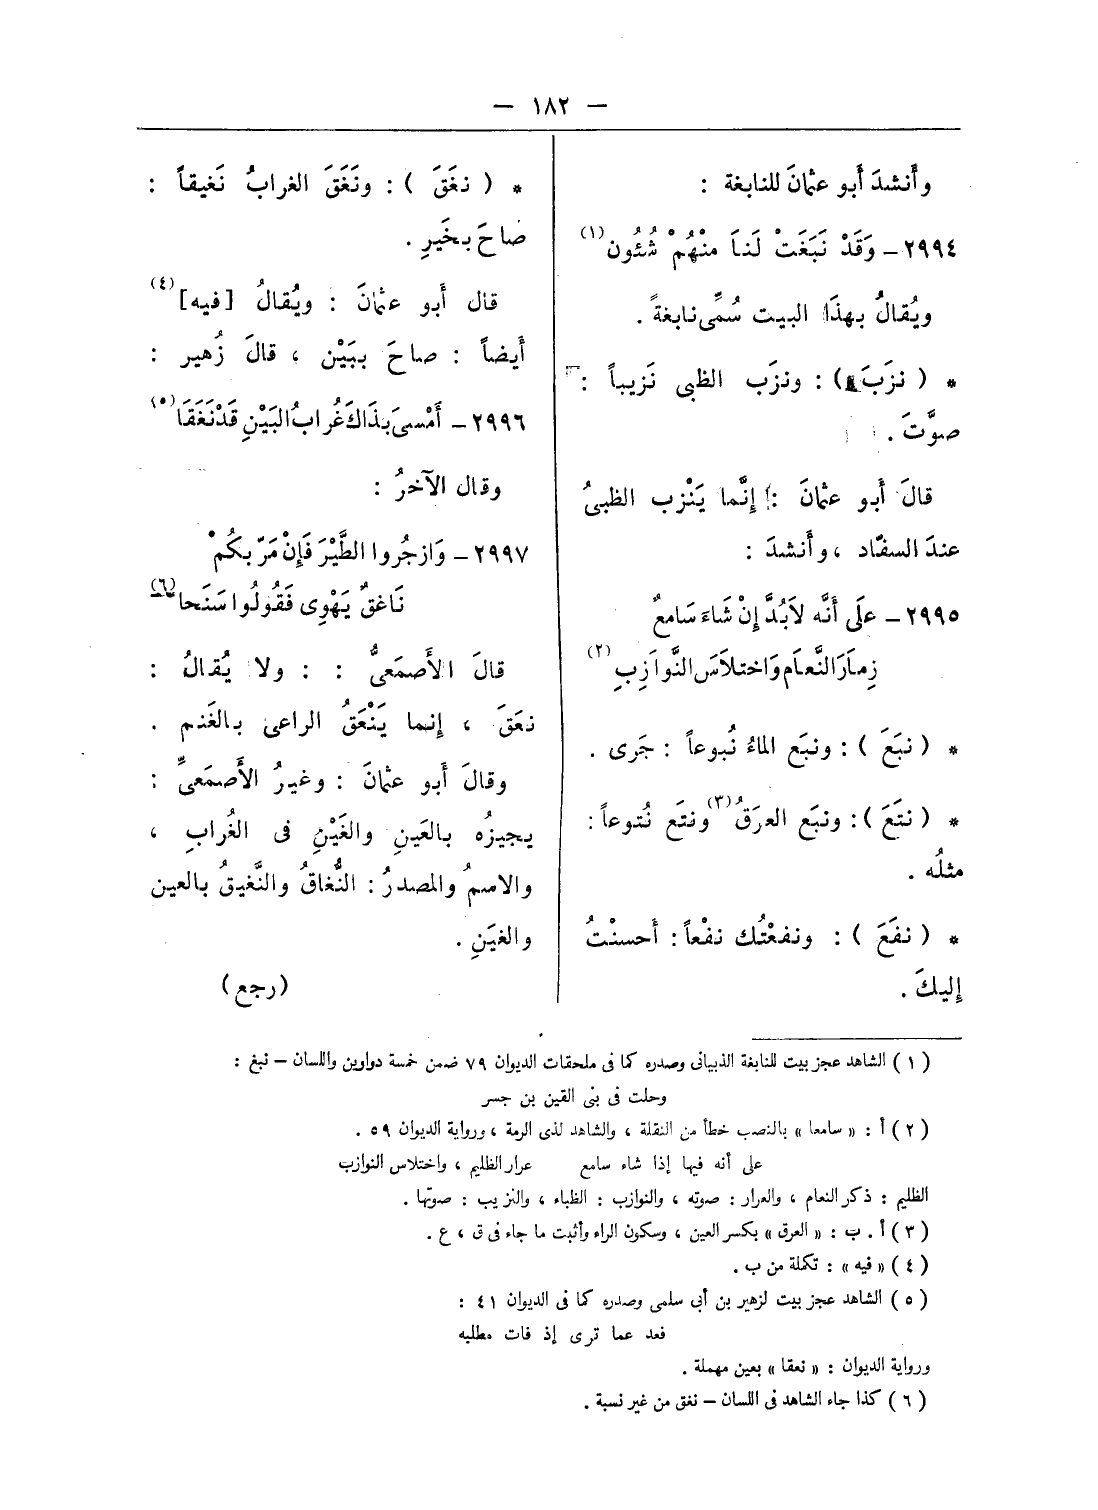 — ١٨٢ —
وأنشدَ أبو عثمانَ للنابغة :
٢٩٩٤ – وَقَدْ نَبَغَتْ لَنَا مِنْهُمْ شُئُون(١)
ويُقالُ بهذَا البيت سُمِّى نابغةً .
* ( نزَبَ ) : ونزَب الظبى نَزيباً :
صوَّتَ .
قالَ أبو عثمانَ : إنَّما يَنْزب الظبىُ
عندَ السفَاد ، وأنشدَ :
٢٩٩٥ – علَى أنَّه لاَبُدَّ إنْ شَاءَ سَامعٌ
زِمَارَ النَّعَام وَاختلاَسَ النَّوَازِبِ(٢)
* ( نبَعَ ) : ونبَع الماءُ نُبوعاً : جَرى .
* ( نتَعَ ) : ونبَع العرَقُ(٣) ونتَع نُتوعاً :
مثلُه .
* ( نفَعَ ) : ونفعْتُك نفْعاً : أحسنْتُ
إليكَ .
* ( نغَقَ ) : ونَغَقَ الغرابُ نَغيقاً :
صاحَ بخَيرِ .
قال أبو عثمانَ : ويُقالُ [فيه](٤)
أيضاً : صاحَ ببَيْن ، قالَ زُهير :
٢٩٩٦ – أمْسىَ بذَاكَ غُرابُ البَيْنِ قَدْ نَغَقَا(٥)
وقال الآخرُ :
٢٩٩٧ – وَازجُروا الطَّيْرَ فَإنْ مَرّ بكُمْ
نَاغقٌ يَهْوِى فَقُولُوا سَنَحا(٦)
قالَ الأصمَعىُّ : : ولا يُقالُ :
نعَقَ ، إنما يَنْعَقُ الراعى بالغَنم .
وقالَ أبو عثمانَ : وغيرُ الأصمَعىِّ :
يجيزُه بالعَينِ والغَيْنِ فى الغُراب ،
والاسمُ والمصدرُ : النُّغاقُ والنَّغيقُ بالعين
والغيَنِ .
(رجع)
( ١ ) الشاهد عجز بيت للنابغة الذبيانى وصدره كما فى ملحقات الديوان ٧٩ ضمن خمسة دواوين واللسان – نبغ :
وحلت فى بنى القين بن جسر
( ٢ ) أ : « سامعا » بالنصب خطأ من النقلة ، والشاهد لذى الرمة ، ورواية الديوان ٥٩ .
على أنه فيها إذا شاء سامع عرار الظليم ، واختلاس النوازب
الظليم : ذكر النعام ، والعرار : صوته ، والنوازب : الظباء ، والنزيب : صوتها .
( ٣ ) أ . ب : « العرق » بكسر العين ، وسكون الراء وأثبت ما جاء فى ق ، ع .
( ٤ ) « فيه » : تكملة من ب .
( ٥ ) الشاهد عجز بيت لزهير بن أبى سلمى وصدره كما فى الديوان ٤١ :
فعد عما ترى إذ فات مطلبه
ورواية الديوان : « نعقا » بعين مهملة .
( ٦ ) كذا جاء الشاهد فى اللسان – نغق من غير نسبة .